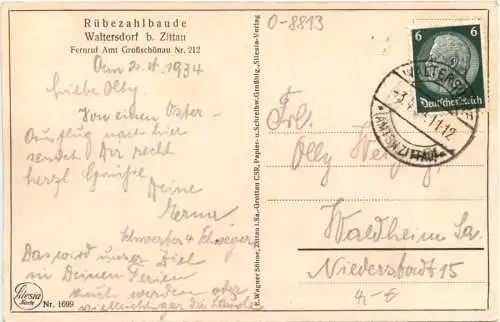 Rübezahlbaude
Waltersdorf b. Zittau
Fernruf Amt Großschönau Nr. 212
O-8813
den 2. 4. 1934
Liebe Olly
Von einem Oster-
Ausflug nach hier
sendet Dir recht
herzl. Grüße
Deine
Erna
Schwester & Schwager
Das wird unser Ziel
in Deinen Ferien
auch werden oder
vielleicht
Silesia
Karte
Nr. 1699
E. Wagner Söhne, Zittau i. Sa.-Grottau CSR, Papier- u. Schreibw.-Großhdlg., Silesia-Verlag
6
6
Deutsches Reich
WALTERSD
11-12
(AMTSH. ZITTAU)
Frl.
Olly
Waldheim Sa.
Niederstadt 15